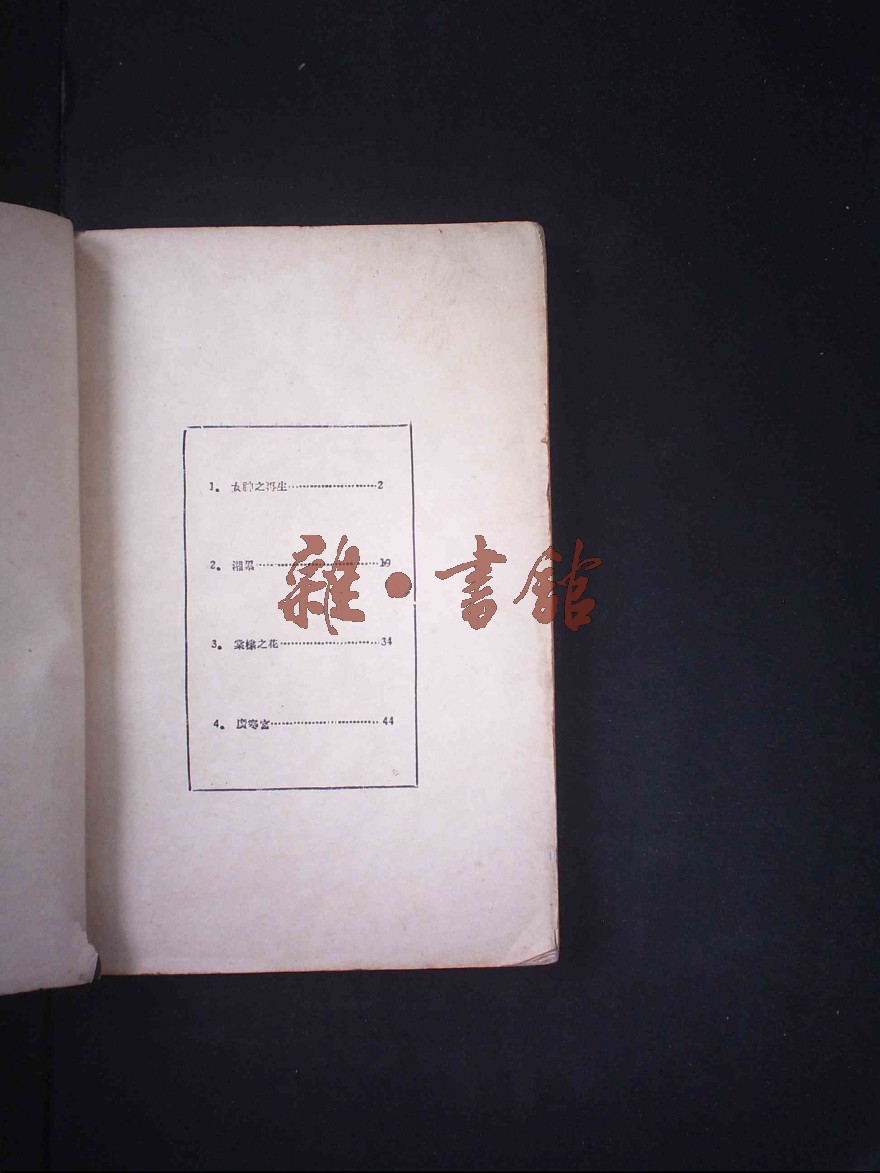 1. 女神之再生························2
2. 湘累························19
雜·書館
3. 棠棣之花························34
4. 廣寒宮························44